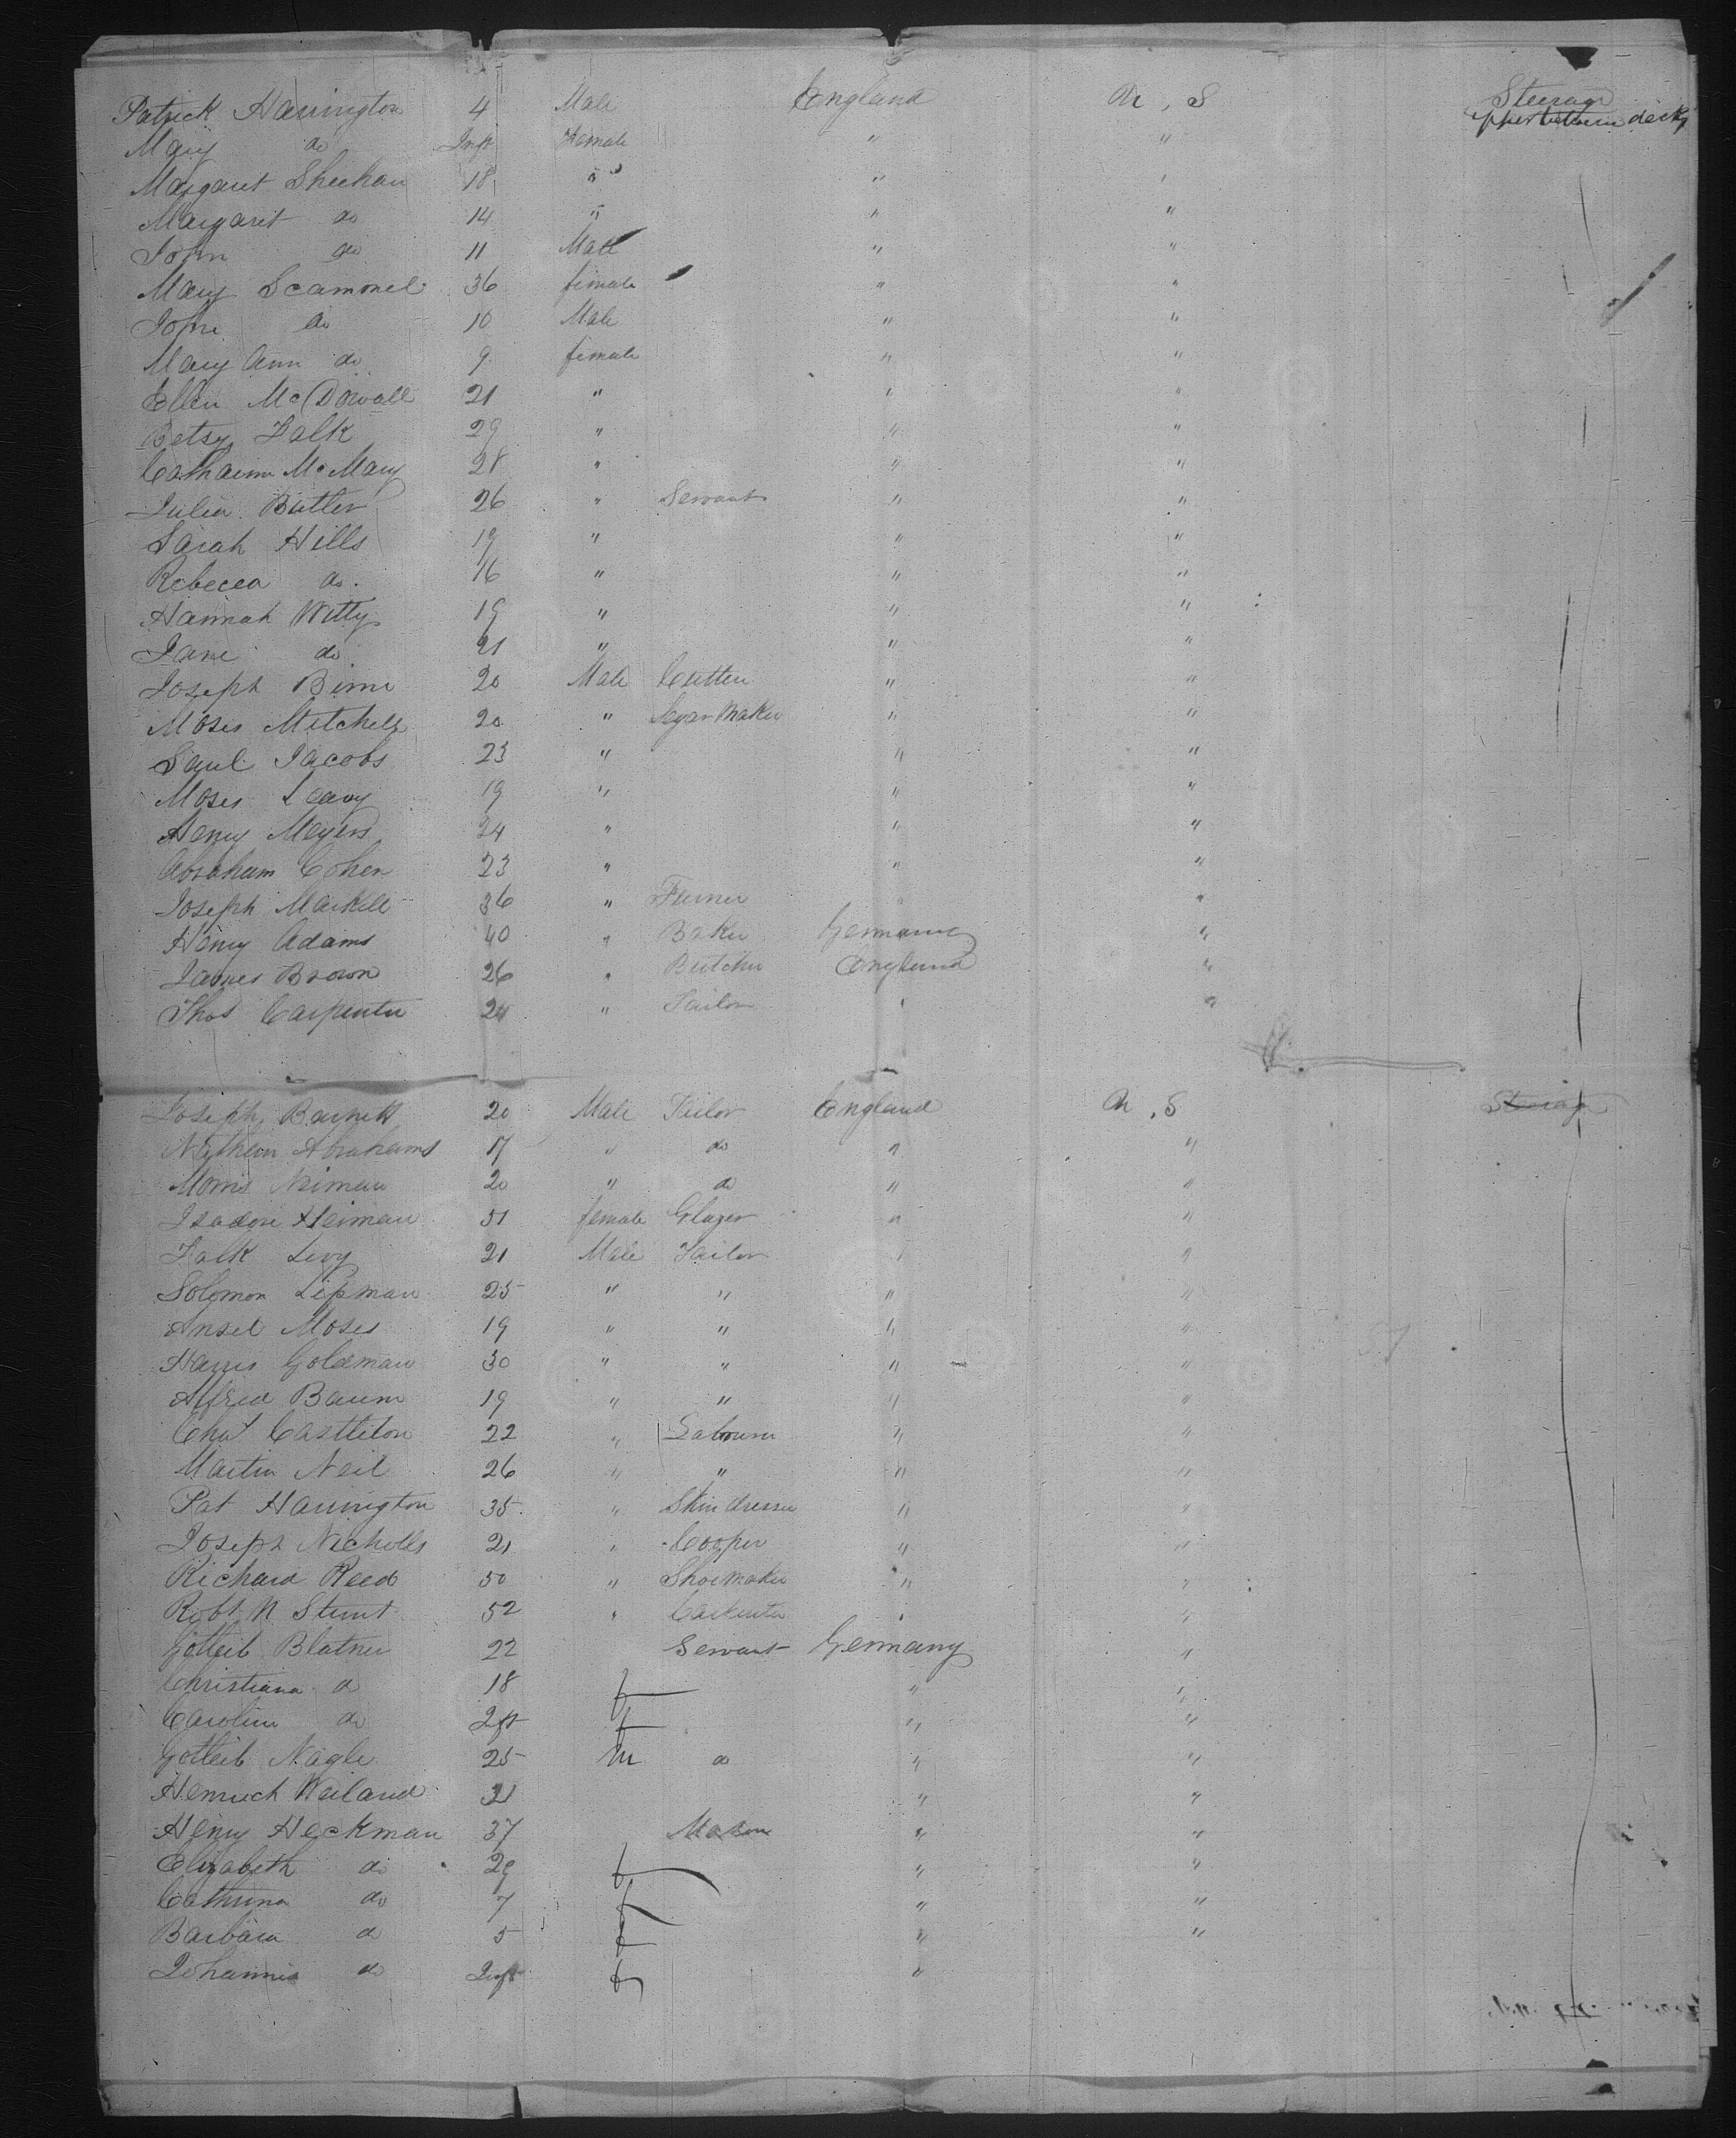 Patrick Harrington 4 Male England U.S Steerage
Mary do Inft Female " " upper between decks
Margaret Sheehan 18 " " "
Margaret do 14 " " "
John do 11 Male " "
Mary Scamonel 36 female " "
John do 10 Male " "
Mary Ann do 9 female " "
Ellen McDowall 21 " " "
Betsy Falk 29 " " "
Catharine McMary 28 " " "
Julia Butler 26 " Servant " "
Sarah Hills 19 " " "
Rebecca do. 16 " " "
Hannah Witty 19 " " "
Jane do 21 " " "
Joseph Birne 20 Male Cutter " "
Moses Mitchell 20 " Segar Maker " "
Saul Jacobs 23 " " "
Moses Leavy 19 " " "
Henry Meyers 24 " " "
Abraham Cohen 23 " " "
Joseph Markell 36 " " "
Henry Adams 40 " Baker Germany "
James Brown 26 " Butcher England "
Thos Carpenter 24 " Tailor " "
Joseph Barnett 20 Male Tailor England U.S Steerage
Nathan Abrahams 17 " do " "
Morris Neiman 20 " do " "
Isadore Heiman 51 female Glazer " "
Falk Levy 21 Male Tailor " "
Solomon Lipman 25 " " " "
Ansel Moses 19 " " " "
Harris Goldman 30 " " " "
Alfred Baum 19 " " " "
Chas Castleton 22 " Labourer " "
Martin Neil 26 " " " "
Pat Harrington 35 " Skin dresser " "
Joseph Nicholls 21 " Cooper " "
Richard Reed 50 " Shoemaker " "
Robt N Sturt 52 " Carpenter " "
Gotleib Blatner 22 Servant Germany "
Christiana do 18 f " "
Caroline do Inft f " "
Gotleib Nagle 25 m do " "
Henrich Weiland 31 " "
Henry Heckman 37 Mason " "
Elizabeth do 29 f " "
Cathrina do 7 f " "
Barbara do 5 f " "
Johannes do Inft "